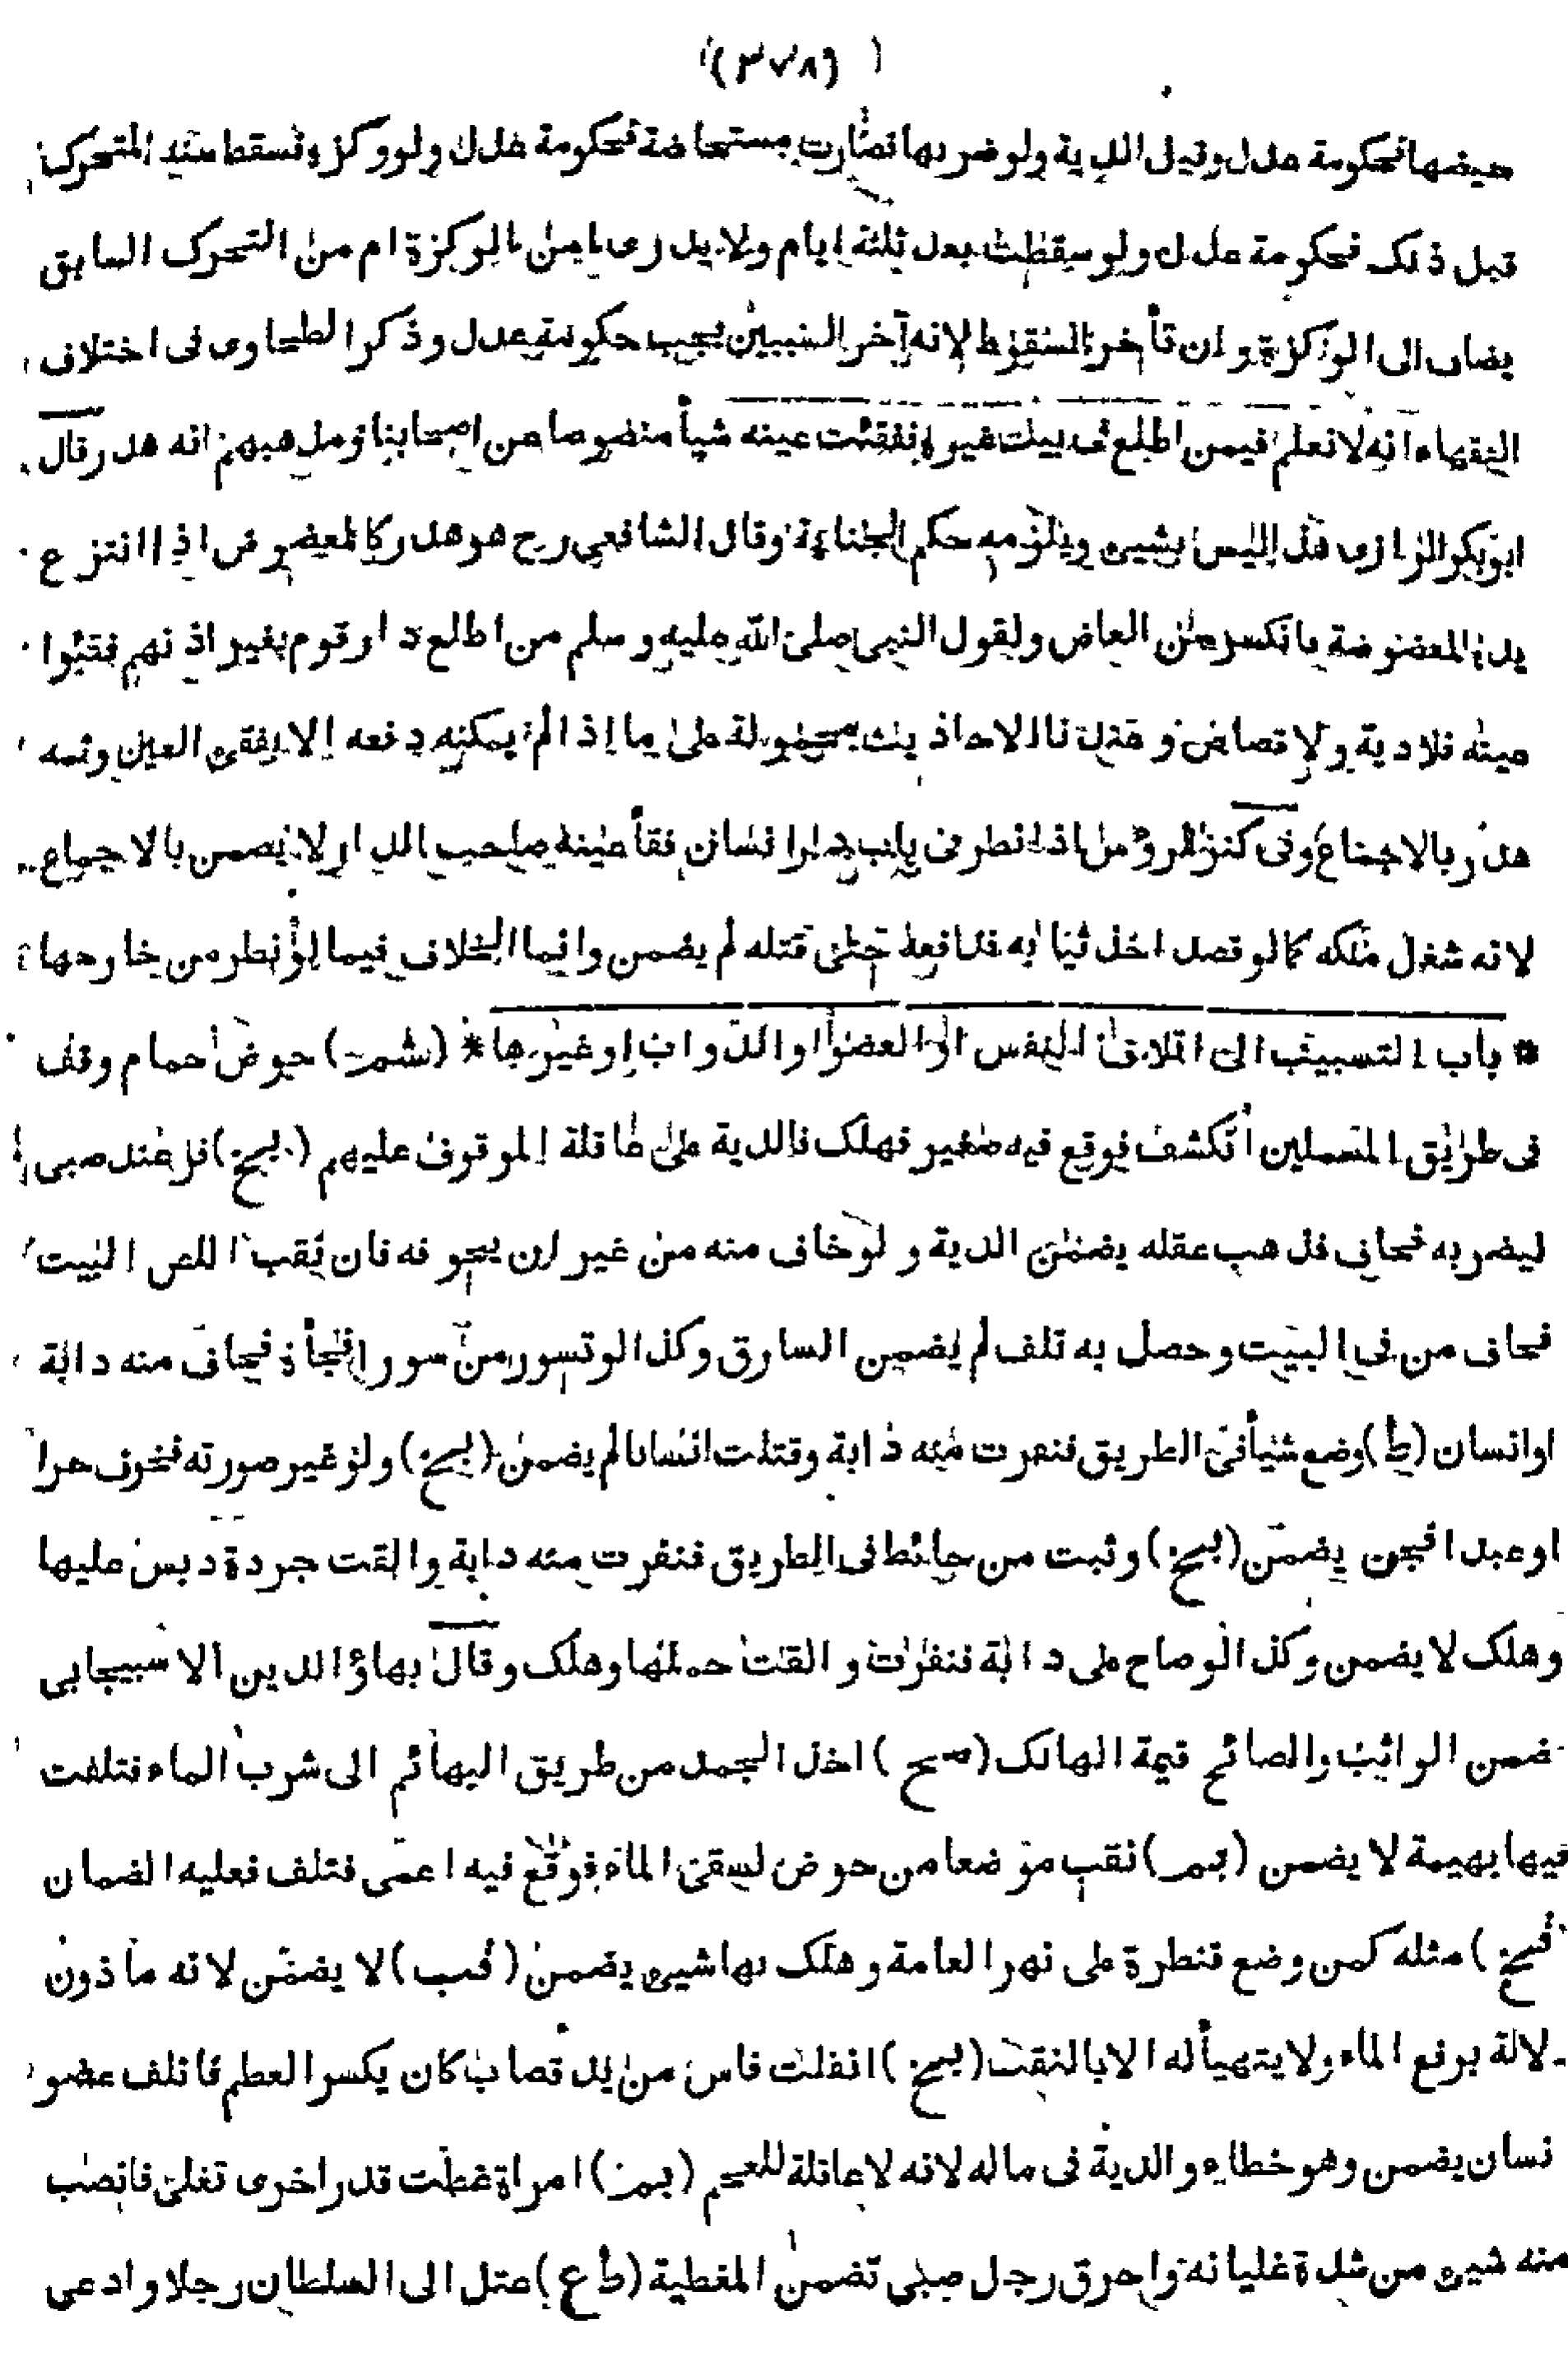 (٣٧٨)
حيضها فحكومة عدل وقيل الدية ولو ضربها فصارت مستحاضة فحكومة عدل ولو وكز وتسقط سنه المتحرك
قبل ذلك فحكومة عدل ولو سقطت بعد ثلثة ايام ولا يدرى امن الوكزة ام من التحرك السابق
يضاف الى الوكزة وان تأخر السقوط لانه آخر السببين يجب حكومة عدل وذكر الطحاوى فى اختلاف
الفقهاء انه لا نعلم فيمن اطلع فى بيت غيره ففقئت عينه شيأ منصوصا عن اصحابنا ومذهبهم انه هدر قال
ابو بكر الرازى هذا ليس بشيئ ويلزمه حكم الجناية وقال الشافعى رح هو هدر كالمعضوض اذا انتزع
يده المعضوضة بانكسر سن العاض ولقول النبى صلى الله عليه وسلم من اطلع دار قوم بغير اذنهم فقئوا
عينه فلا دية ولا قصاص وعندنا الاحاديث محمولة على ما اذا لم يمكنه دفعه الا بفقئ العين وثمه
هدر بالاجماع وفى كنز الرؤس اذا نظر فى باب دار انسان ففقأ عينه صاحب الدار لا يضمن بالاجماع
لانه شغل ملكه كما لو قصد اخذ ثيابه فدافعه حتى قتله لم يضمن وانما الخلاف فيما لو نظر من خارجها
* باب التسبيب الى اتلاف النفس او العضو او الدواب او غيرها * (شمـ) حوض احمام وقف
فى طريق المسلمين انكشف فوقع فيه صغير فهلك فالدية على عاقلة الموقوف عليهم (بمخ) فزع عند صبى
ليضربه فخاف فذهب عقله يضمن الدية ولو خاف منه من غير ان يخوفه فان نقب اللص البيت
فخاف من فى البيت وحصل به تلف لم يضمن السارق وكذا لو تسور من سور افجأة فخاف منه دابة
او انسان (ط) وضع شيأ فى الطريق فنفرت منه دابة وقتلت انسانا لم يضمن (بمخ) ولو غير صورته فخوف حرا
او عبدا فجن يضمن (بمخ) وثبت من حائط فى الطريق فنفرت منه دابة والقت جردة دبس عليها
وهلك لا يضمن وكذا لو صاح على دابة فنفرت والقت حملها وهلك وقال بهاؤ الدين الاسبيجابى
ضمن الواثب والصائح قيمة الهالك (صح) اخذ الجمد من طريق البهائم الى شرب الماء فتلفت
فيها بهيمة لا يضمن (بمـ) نقب موضعا من حوض لسقى الماء فوقع فيه اعمى فتلف فعليه الضمان
(فمخ) مثله كمن وضع قنطرة على نهر العامة وهلك بها شيئ يضمن (فمب) لا يضمن لانه ماذون
لالة برفع الماء ولا يتهيأ له الا بالنقب (بمخ) انفلت فاس من يد قصاب كان يكسر العظم فاتلف عضو
نسان يضمن وهو خطاء والدية فى ماله لانه لا عاقلة للعجم (بمز) امراة غطت قدر اخرى تغلى فانصب
منه شيئ من شدة غليانه واحرق رجل صبى تضمن المغطية (ط ع) عتل الى السلطان رجلا وادعى